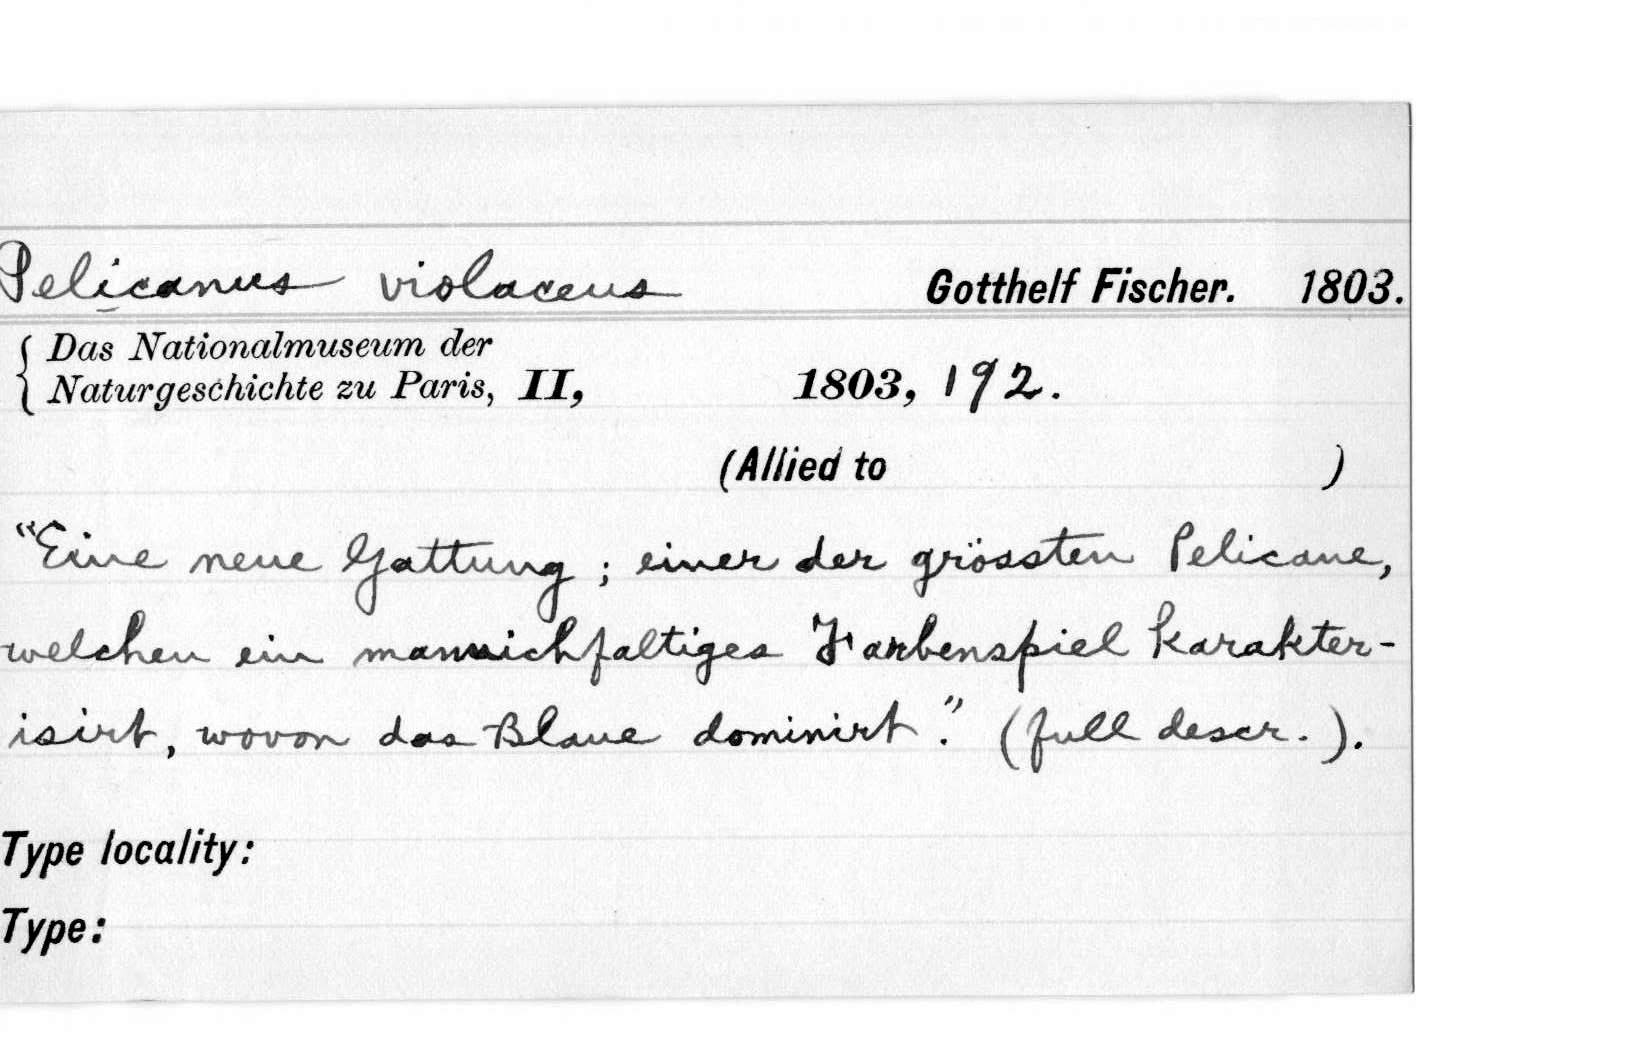 Pelicanus violaceus Gotthelf Fischer. 1803.
Das Nationalmuseum der
Naturgeschichte zu Paris, II, 1803, 192.
(Allied to )
"Eine neue Gattung; einer der grössten Pelicane,
welchen ein mannichfaltiges Farbenspiel karakter-
isirt, wovon das Blaue dominirt." (full descr.).
Type locality:
Type: